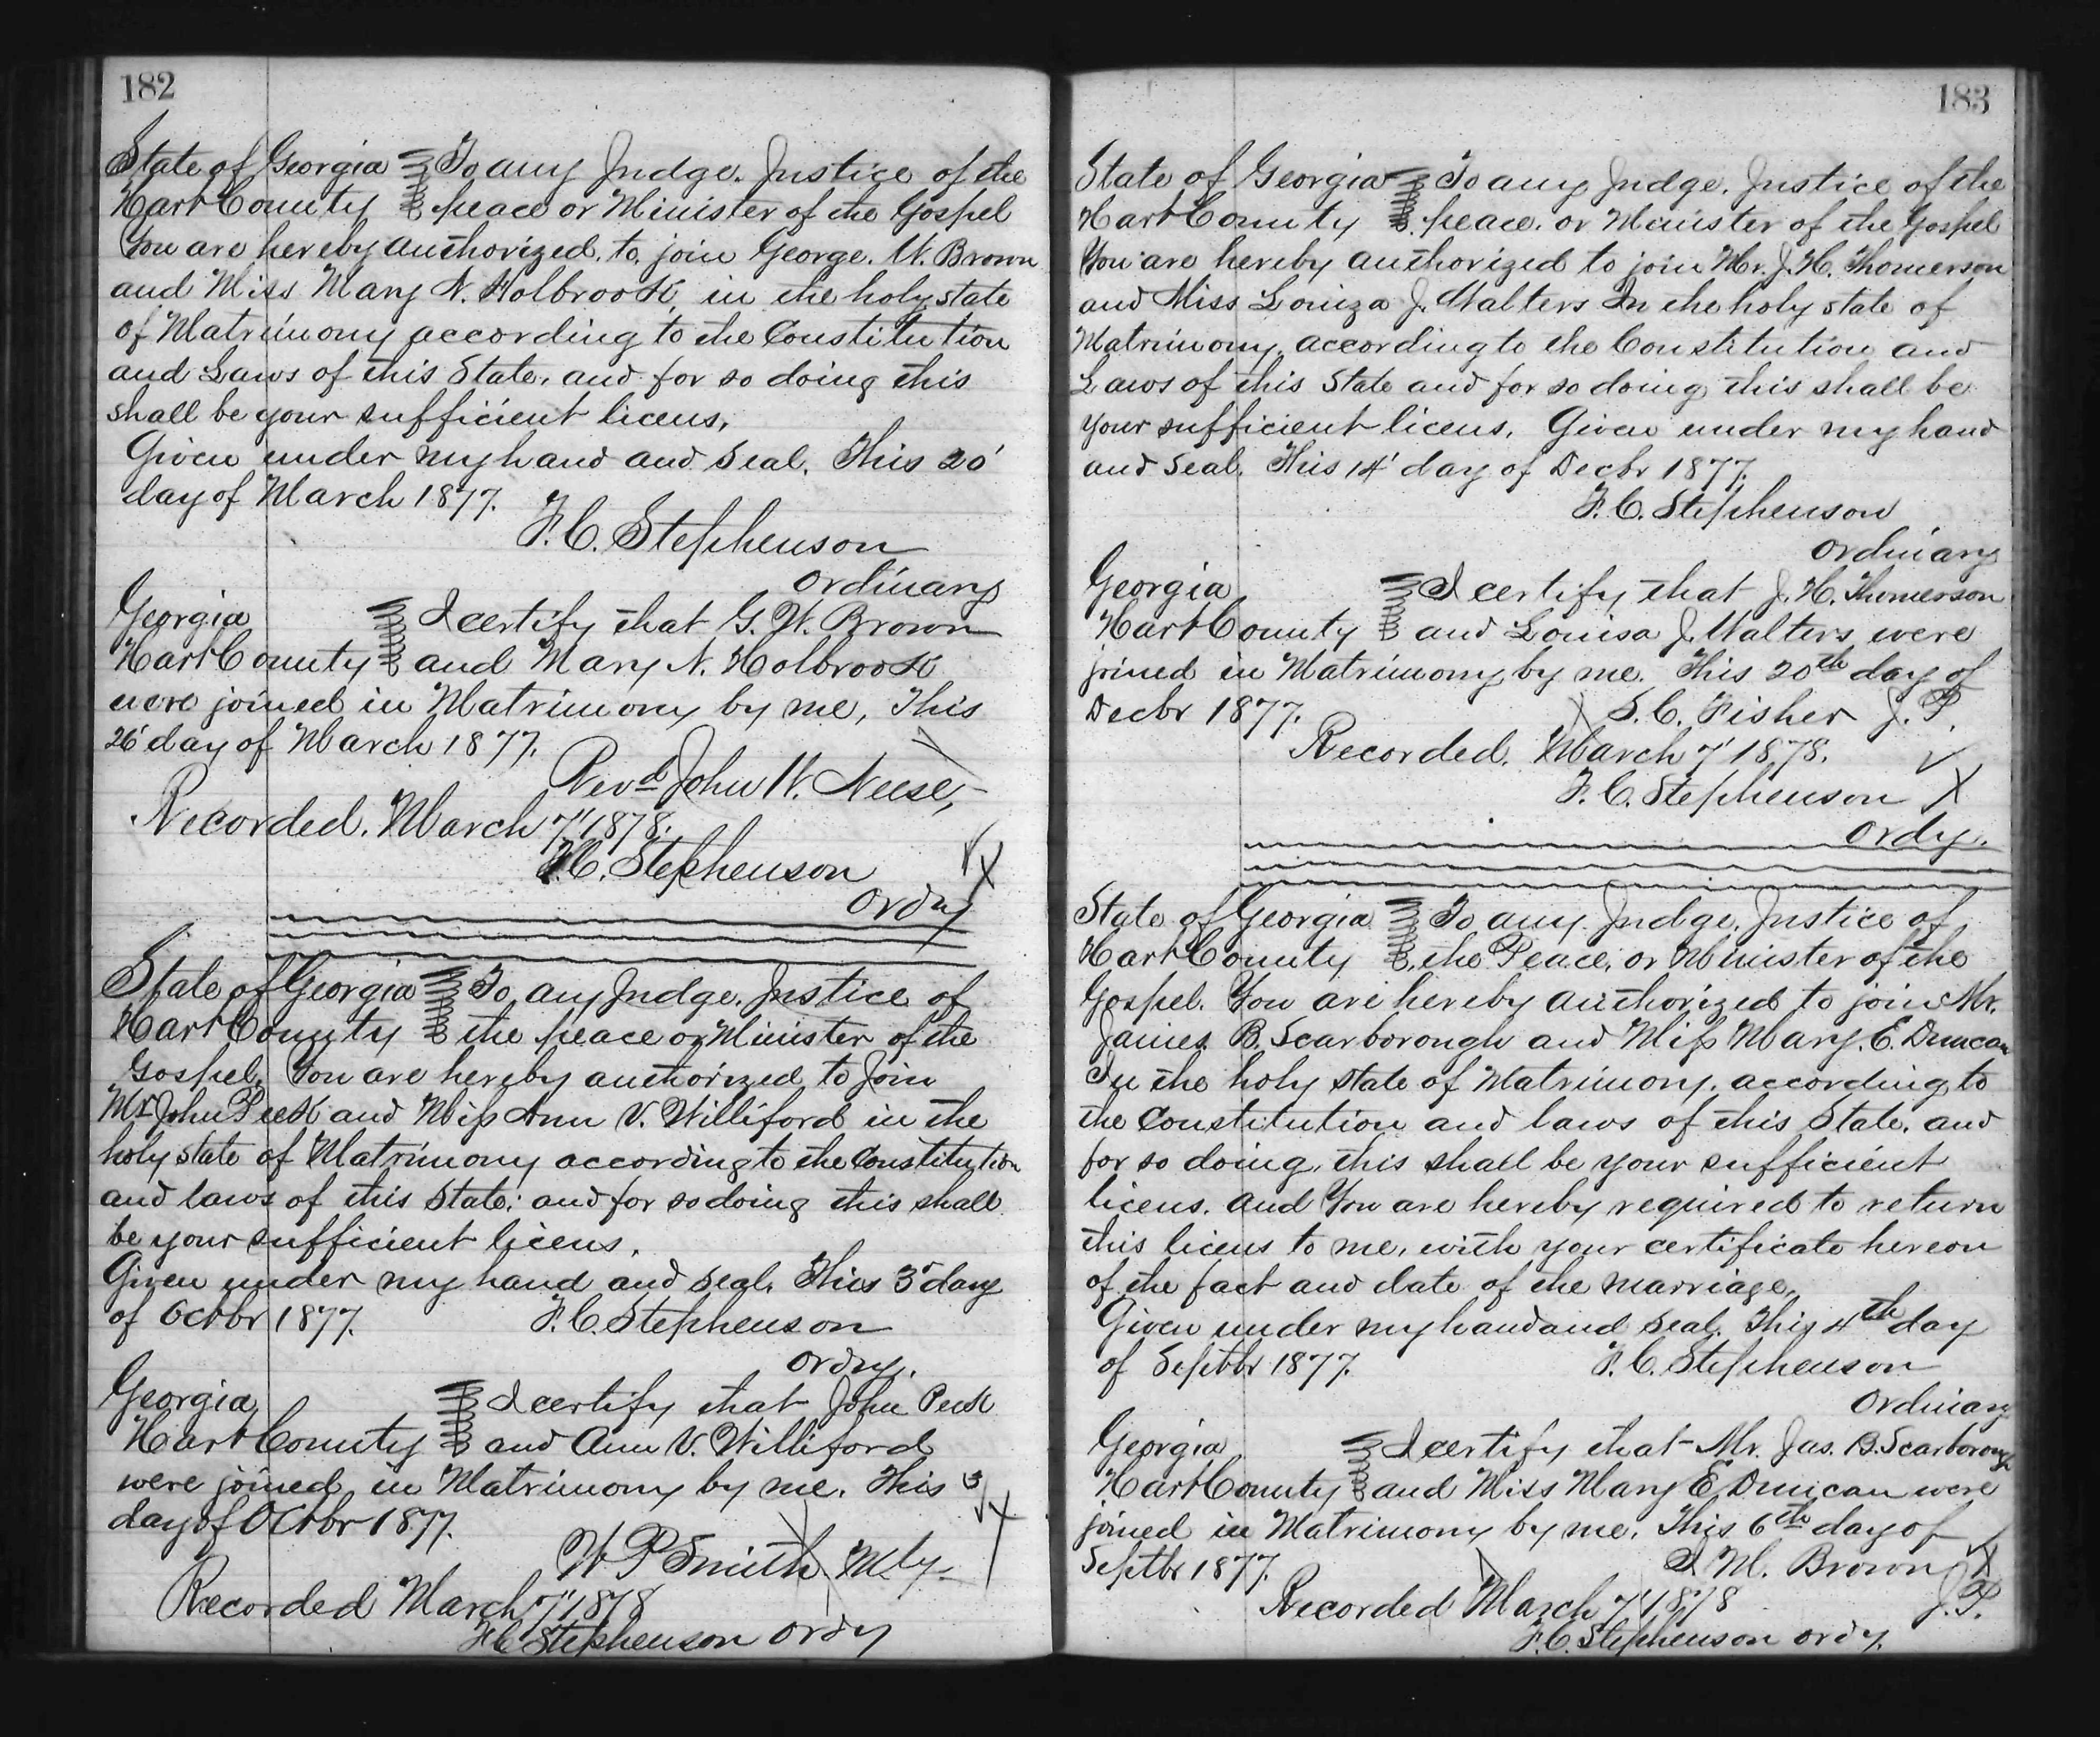 182
State of Georgia To any Judge. Justice of the
Hart County peace or Minister of the Gospel
You are hereby authorized. to. join George. W. Brown
and Miss Mary N. Holbrook in the holy state
of Matrimony according to the Constitution
and Laws of this State, and for so doing this
shall be your sufficient licens,
Given under my hand and Seal. This 20'
day of March 1877.
F. C. Stephenson
Ordinary
Georgia I certify that G. W. Brown
Hart County and Mary N. Holbrook
were joined in Matrimony by me, This
26' day of March 1877.
Revd John W. Neese,
Recorded. March 7' 1878.
F. C. Stephenson
Ordy
State of Georgia To any Judge. Justice of
Hart County the peace or Minister of the
Gospel. You are hereby authorized to join
Mr John Peek and Miss Ann V. Williford in the
holy state of Matrimony according to the Constitution
and laws of this State; and for so doing this shall
be your sufficient licens.
Given under my hand and Seal. This 3r day
of Octbr 1877. F. C. Stephenson
Ordy.
Georgia I certify that John Peek
Hart County and Ann V. Williford
were joined in Matrimony by me. This 3
day of Octbr 1877.
W P Smith
Recorded March 7' 1878
F. C. Stephenson Ordy
183
State of Georgia To any Judge. Justice of the
Hart County peace. or Minister of the Gospel
You are hereby authorized to join Mr. J. H. Thomerson
and Miss Louiza J. Walters In the holy state of
Matrimony, according to the Constitution and
Laws of this State and for so doing this shall be
your sufficient licens. Given under my hand
and Seal. This 14' day of Decbr 1877.
F. C. Stephenson
Ordinary
Georgia I certify that J. H. Thomerson
Hart County and Louisa J. Walters were
joined in Matrimony by me. This 20th day of
Decbr 1877. S. C. Fisher J. P.
Recorded. March 7' 1878.
F. C. Stephenson
Ordy.
State of Georgia To any Judge. Justice of
Hart County the Peace, or Minister of the
Gospel. You are hereby authorized to join Mr.
James B. Scarborough and Miss Mary. E. Duncan
In the holy state of Matrimony. according to
the Constitution and laws of this State. and
for so doing, this shall be your sufficient
licens. and You are hereby required to return
this licens to me, with your certificate hereon
of the fact and date of the marriage.
Given under my hand and Seal. This 4th day
of Septbr 1877. F. C. Stephenson
Ordinary
Georgia I certify that Mr. Jas. B. Scarborough
Hart County and Miss Mary E. Duncan were
joined in Matrimony by me. This 6th day of
Septbr 1877. I. M. Brown
Recorded March 7' 1878 J. P.
F. C. Stephenson Ordy.